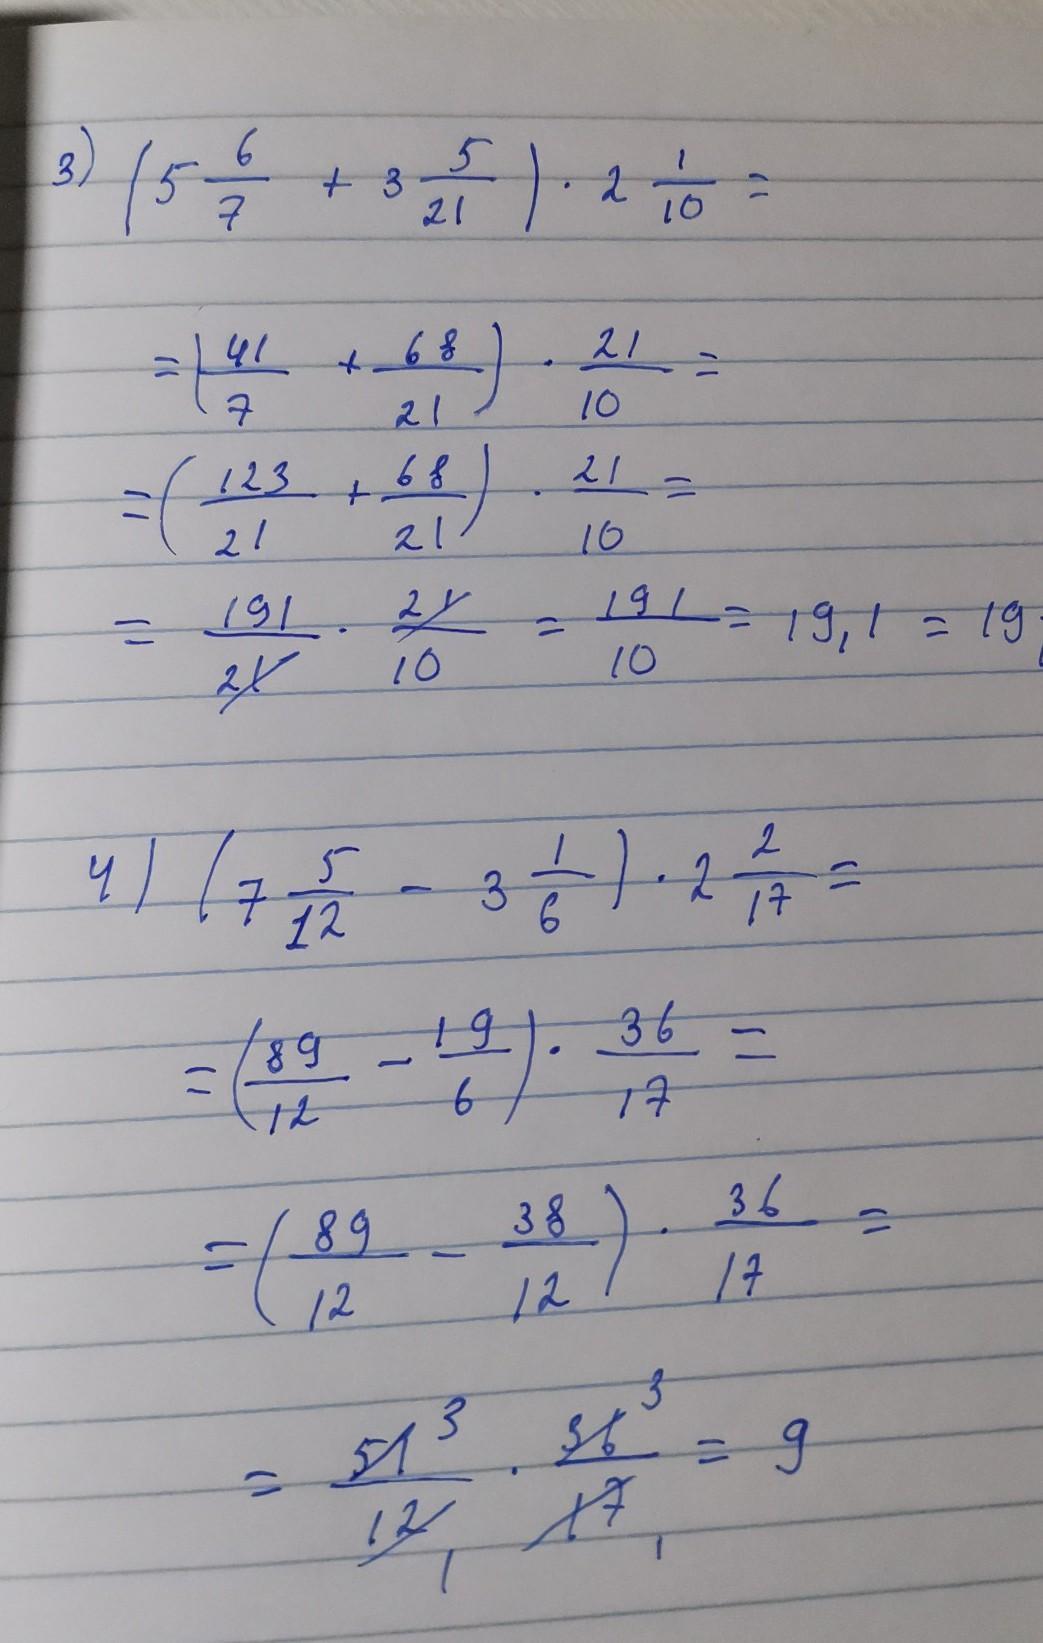 3) (5 6/7 + 3 5/21) · 2 1/10 =
= (41/7 + 68/21) · 21/10 =
= (123/21 + 68/21) · 21/10 =
= 191/21 · 21/10 = 191/10 = 19,1 = 19,
4) (7 5/12 - 3 1/6) · 2 2/17 =
= (89/12 - 19/6) · 36/17 =
= (89/12 - 38/12) · 36/17 =
= 51 3/12 1 · 36 3/17 1 = 9